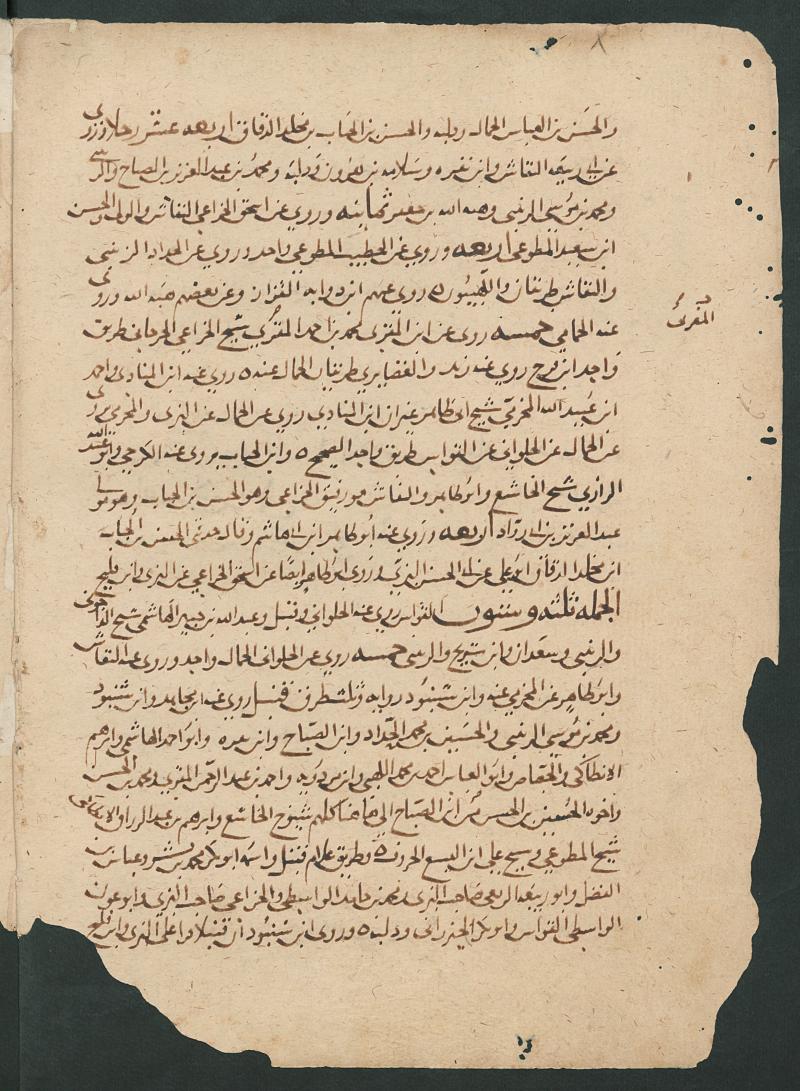 والحسن بن العباس الجمال ودلبه والحسن بن الحباب بن مخلد الدقاق اربعه عشر رجلا وروى
عن ابي ربيعه النقاش وابن بقره وسلامه بن هرون ودلبه ومحمد بن عبد العزيز بن الصباح
ومحمد بن موسى الزينبي وهبه الله بن جعفر ثمانيه وروي عن اسحق الخزاعي النقاش والحسن
ابن سعيد المطوعي اربعه وروي عن الخطيب المطوعي واحد وروي عن الحداد الزينبي
والنقاش طريقان واللهبيون روي عنهم ابن ذوابه القزاز وعن بعضهم هبه الله وروى
عنه الحمامي خمسه روى عن ابن المقرى محمد بن احمد المقرى شيخ الخزاعي الجرجاني طريق
المقرئ
واحد ابن فرح روي عنه زيد والغضايري طريقان الجمال عنه روي عنه ابن المنادي واحمد
ابن عبيد الله المخرمي شيخ ابي طاهر غير ان ابن المنادي روي عن الجمال عن البزى والمخرمي
عن الجمال عن الحلواني عن القواس طريق واحد الصحيح وابن الحباب يروى عنه الكرجي
الرازي شيخ الخاشع وابو طاهر والنقاش من طريق الخزاعي وهو الحسن بن الحباب وهو مولى
عبد العزيز بن ابي رواد اربعه وروى عنه ابو طاهر ابن ابي هاشم وقال حدثني الحسن بن الحباب
ابن مخلد الدقاق ابو علي عن ابي الحسن البزي وروى ابو طاهر ايضا عن اسحق الخزاعي عن البزي وابن فليح
الجمله ثلثه وستون القواس روى عنه الحلواني وقنبل وعبد الله بن جبير الهاشمي شيخ
والزينبي وسعدان وابن شريح خمسه روي عن الحلواني الجمال واحد وروى عنه النقاش
وابو طاهر عن المخرمي عنه وابن شنبوذ روايه ثلث طرق قنبل روي عنه ابن مجاهد وابن شنبوذ
ومحمد بن موسى الزينبي والحسين بن محمد الحداد وابن الصباح وابن بقره وابو احمد الهاشمي وابرهيم
الانطاكي والجصاص وابو العباس احمد بن محمد اللهبي واحمد بن عبد الرحمن المقري ومحمد بن الحسن
واخوه الحسين بن الحسن من ابن الصباح الى هاهنا كلهم شيوخ الخاشع وابرهيم بن عبد الرزاق الانطاكي
شيخ المطوعي وشيخ علي ابن اليسع وطريق غلام قنبل واسمه ابو بكر محمد بن وعباس بن
الفضل وابو ربيعه الربعي صاحب البزى ومحمد بن حامد الواسطي والخزاعي صاحب البزي وابو عون
الواسطي القواس وابو بكر ودلبه وروى ابن شنبوذ ان قنبلا قرا على البزي وابن فليح